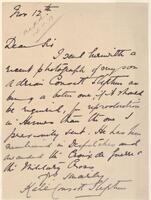 Nov 12th
Dear Sir
I send herewith a
recent photograph of my son
Adrian Consett Stephen as
being a better one if it should
be required, for reproduction
in than the one I
previously sent. He has been
mentioned in Despatches and
awarded the Croix de Guerre &
the Military Cross
Yrs
Consett Stephen